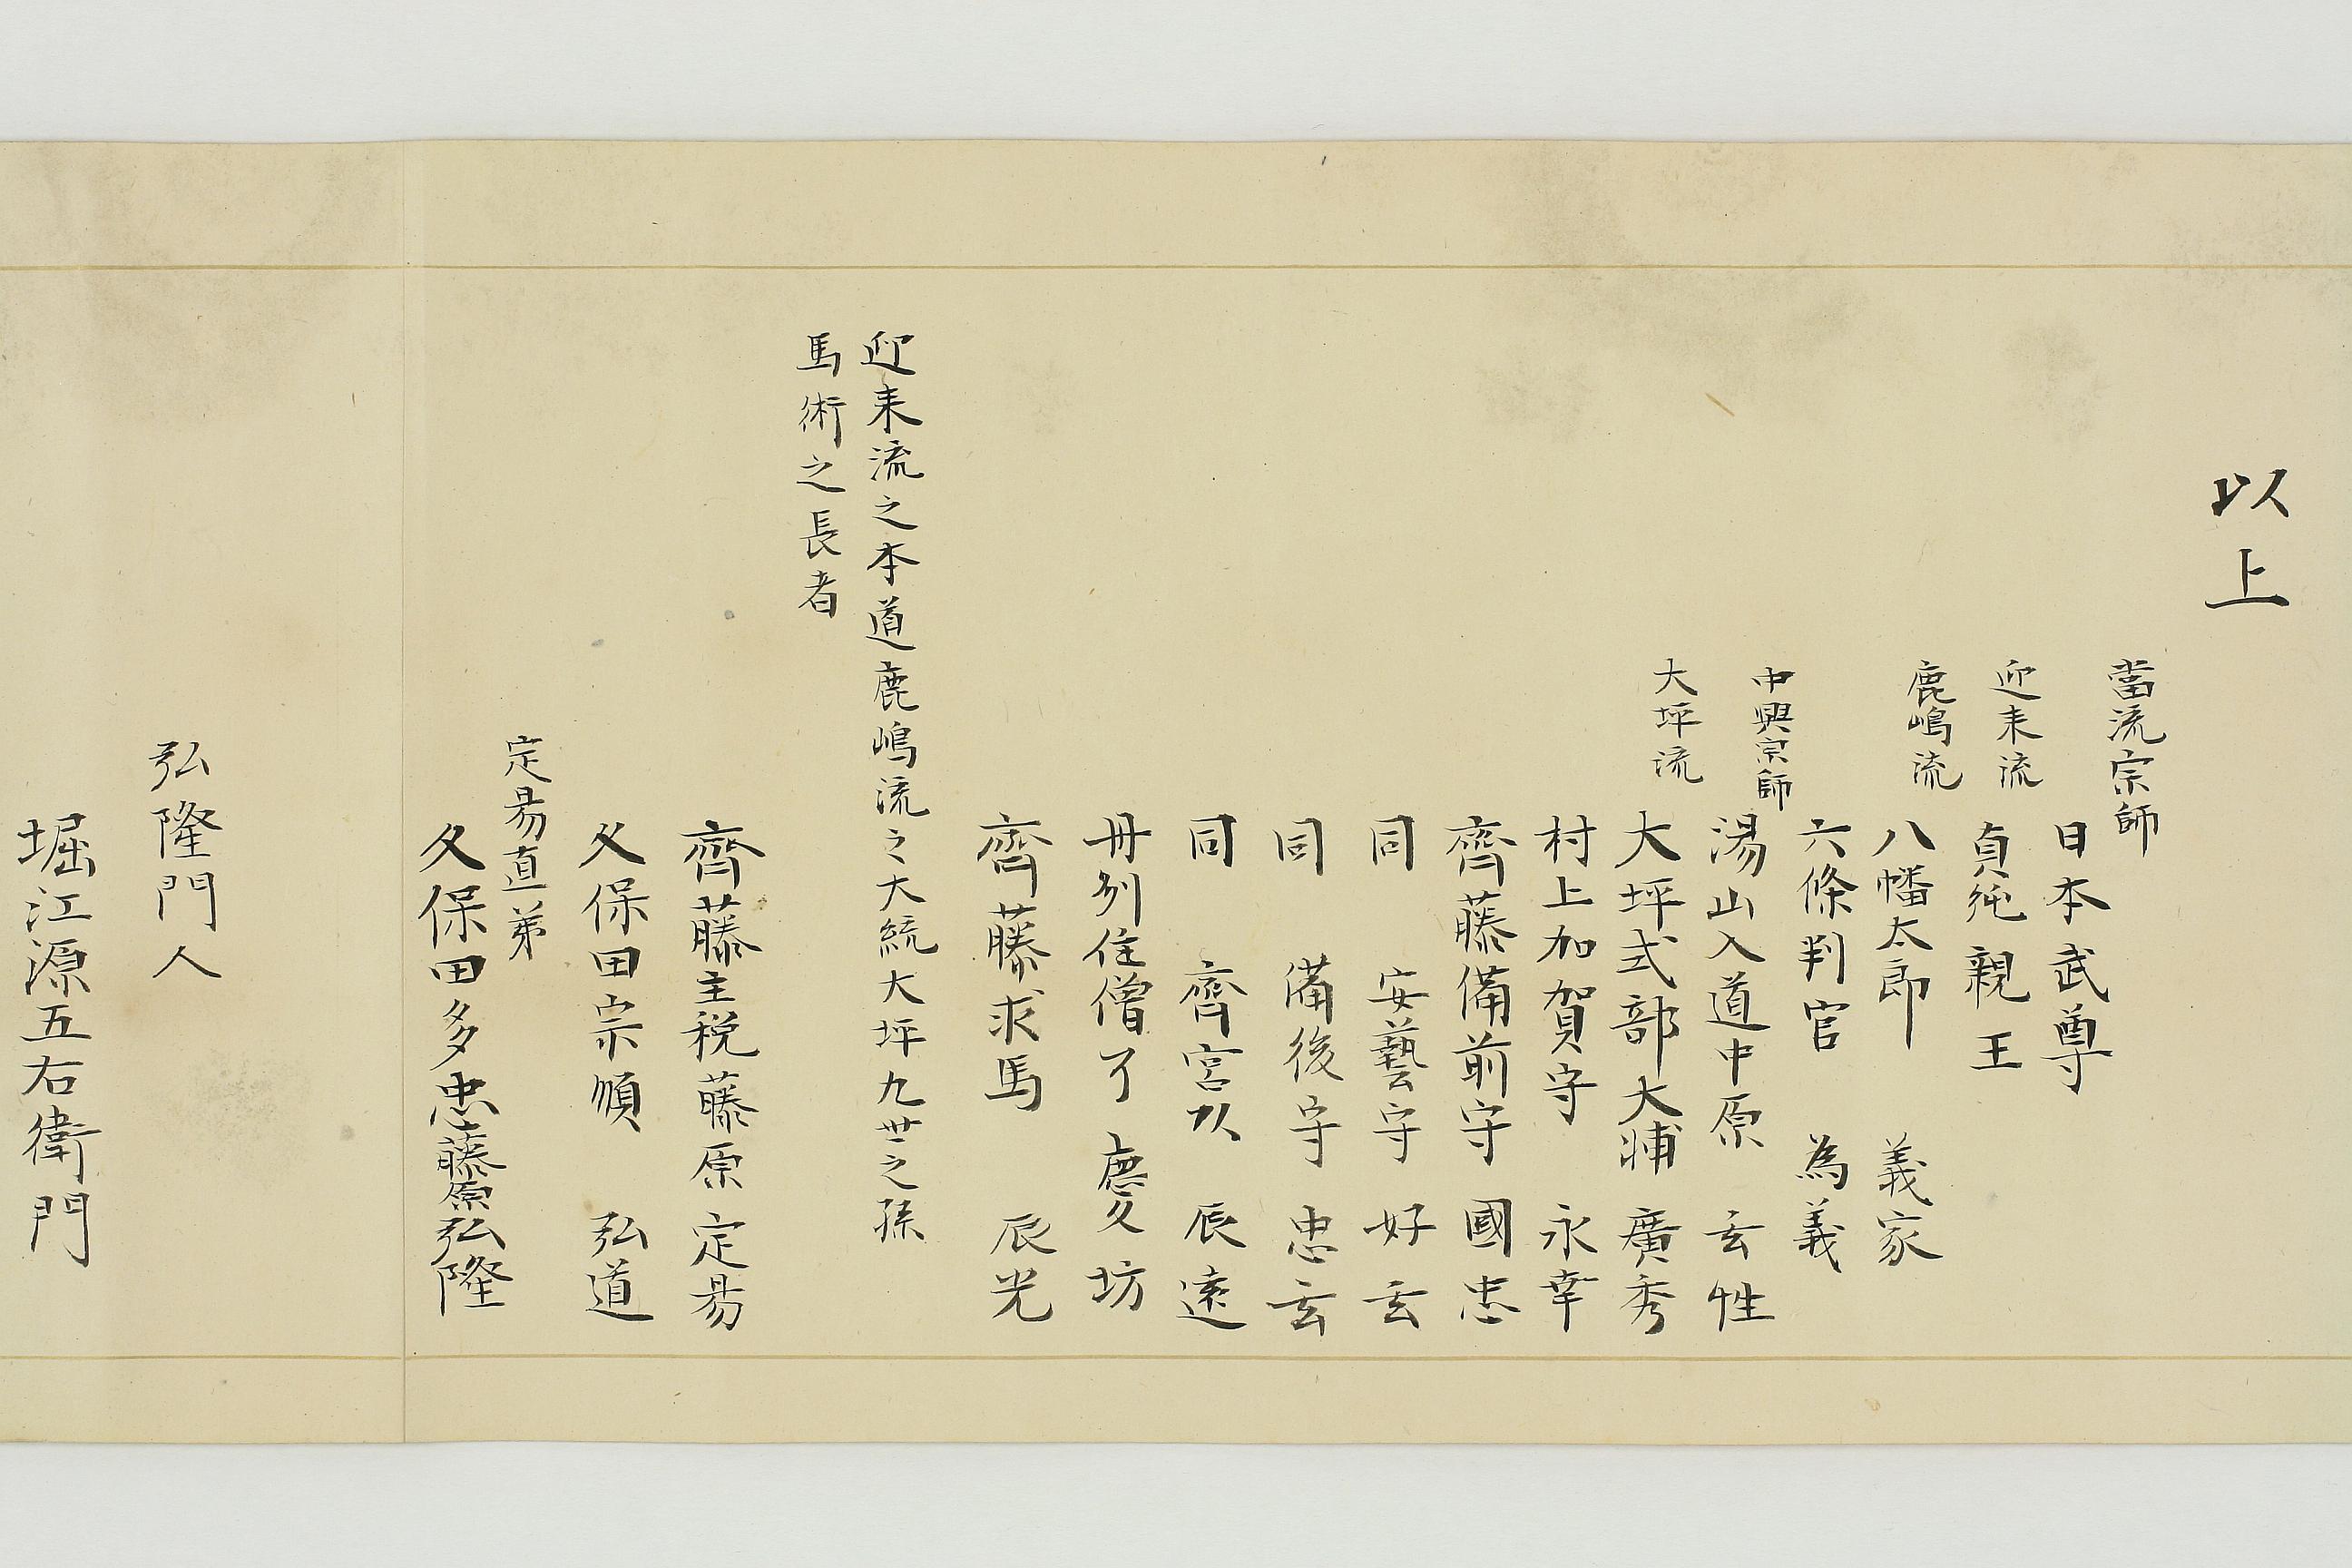 以上
當流宗師
日本武尊
迎来流
貞純親王
鹿嶋流
八幡太郎 義家
六條判官 為義
中興宗師
湯山入道中原 玄性
大坪流
大坪式部大輔 廣秀
村上加賀守 永幸
齊藤備前守 國忠
同 安藝守 好玄
同 備後守 忠玄
同 齊宮以 辰遠
丹列住僧了 慶久坊
齊藤求馬 辰光
迎来流之本道鹿嶋流之大統大坪九世之孫
馬術之長者
齊藤主税藤原定易
久保田宗順 弘道
定易直弟
久保田多忠藤原弘隆
弘隆門人
堀江源五右衛門